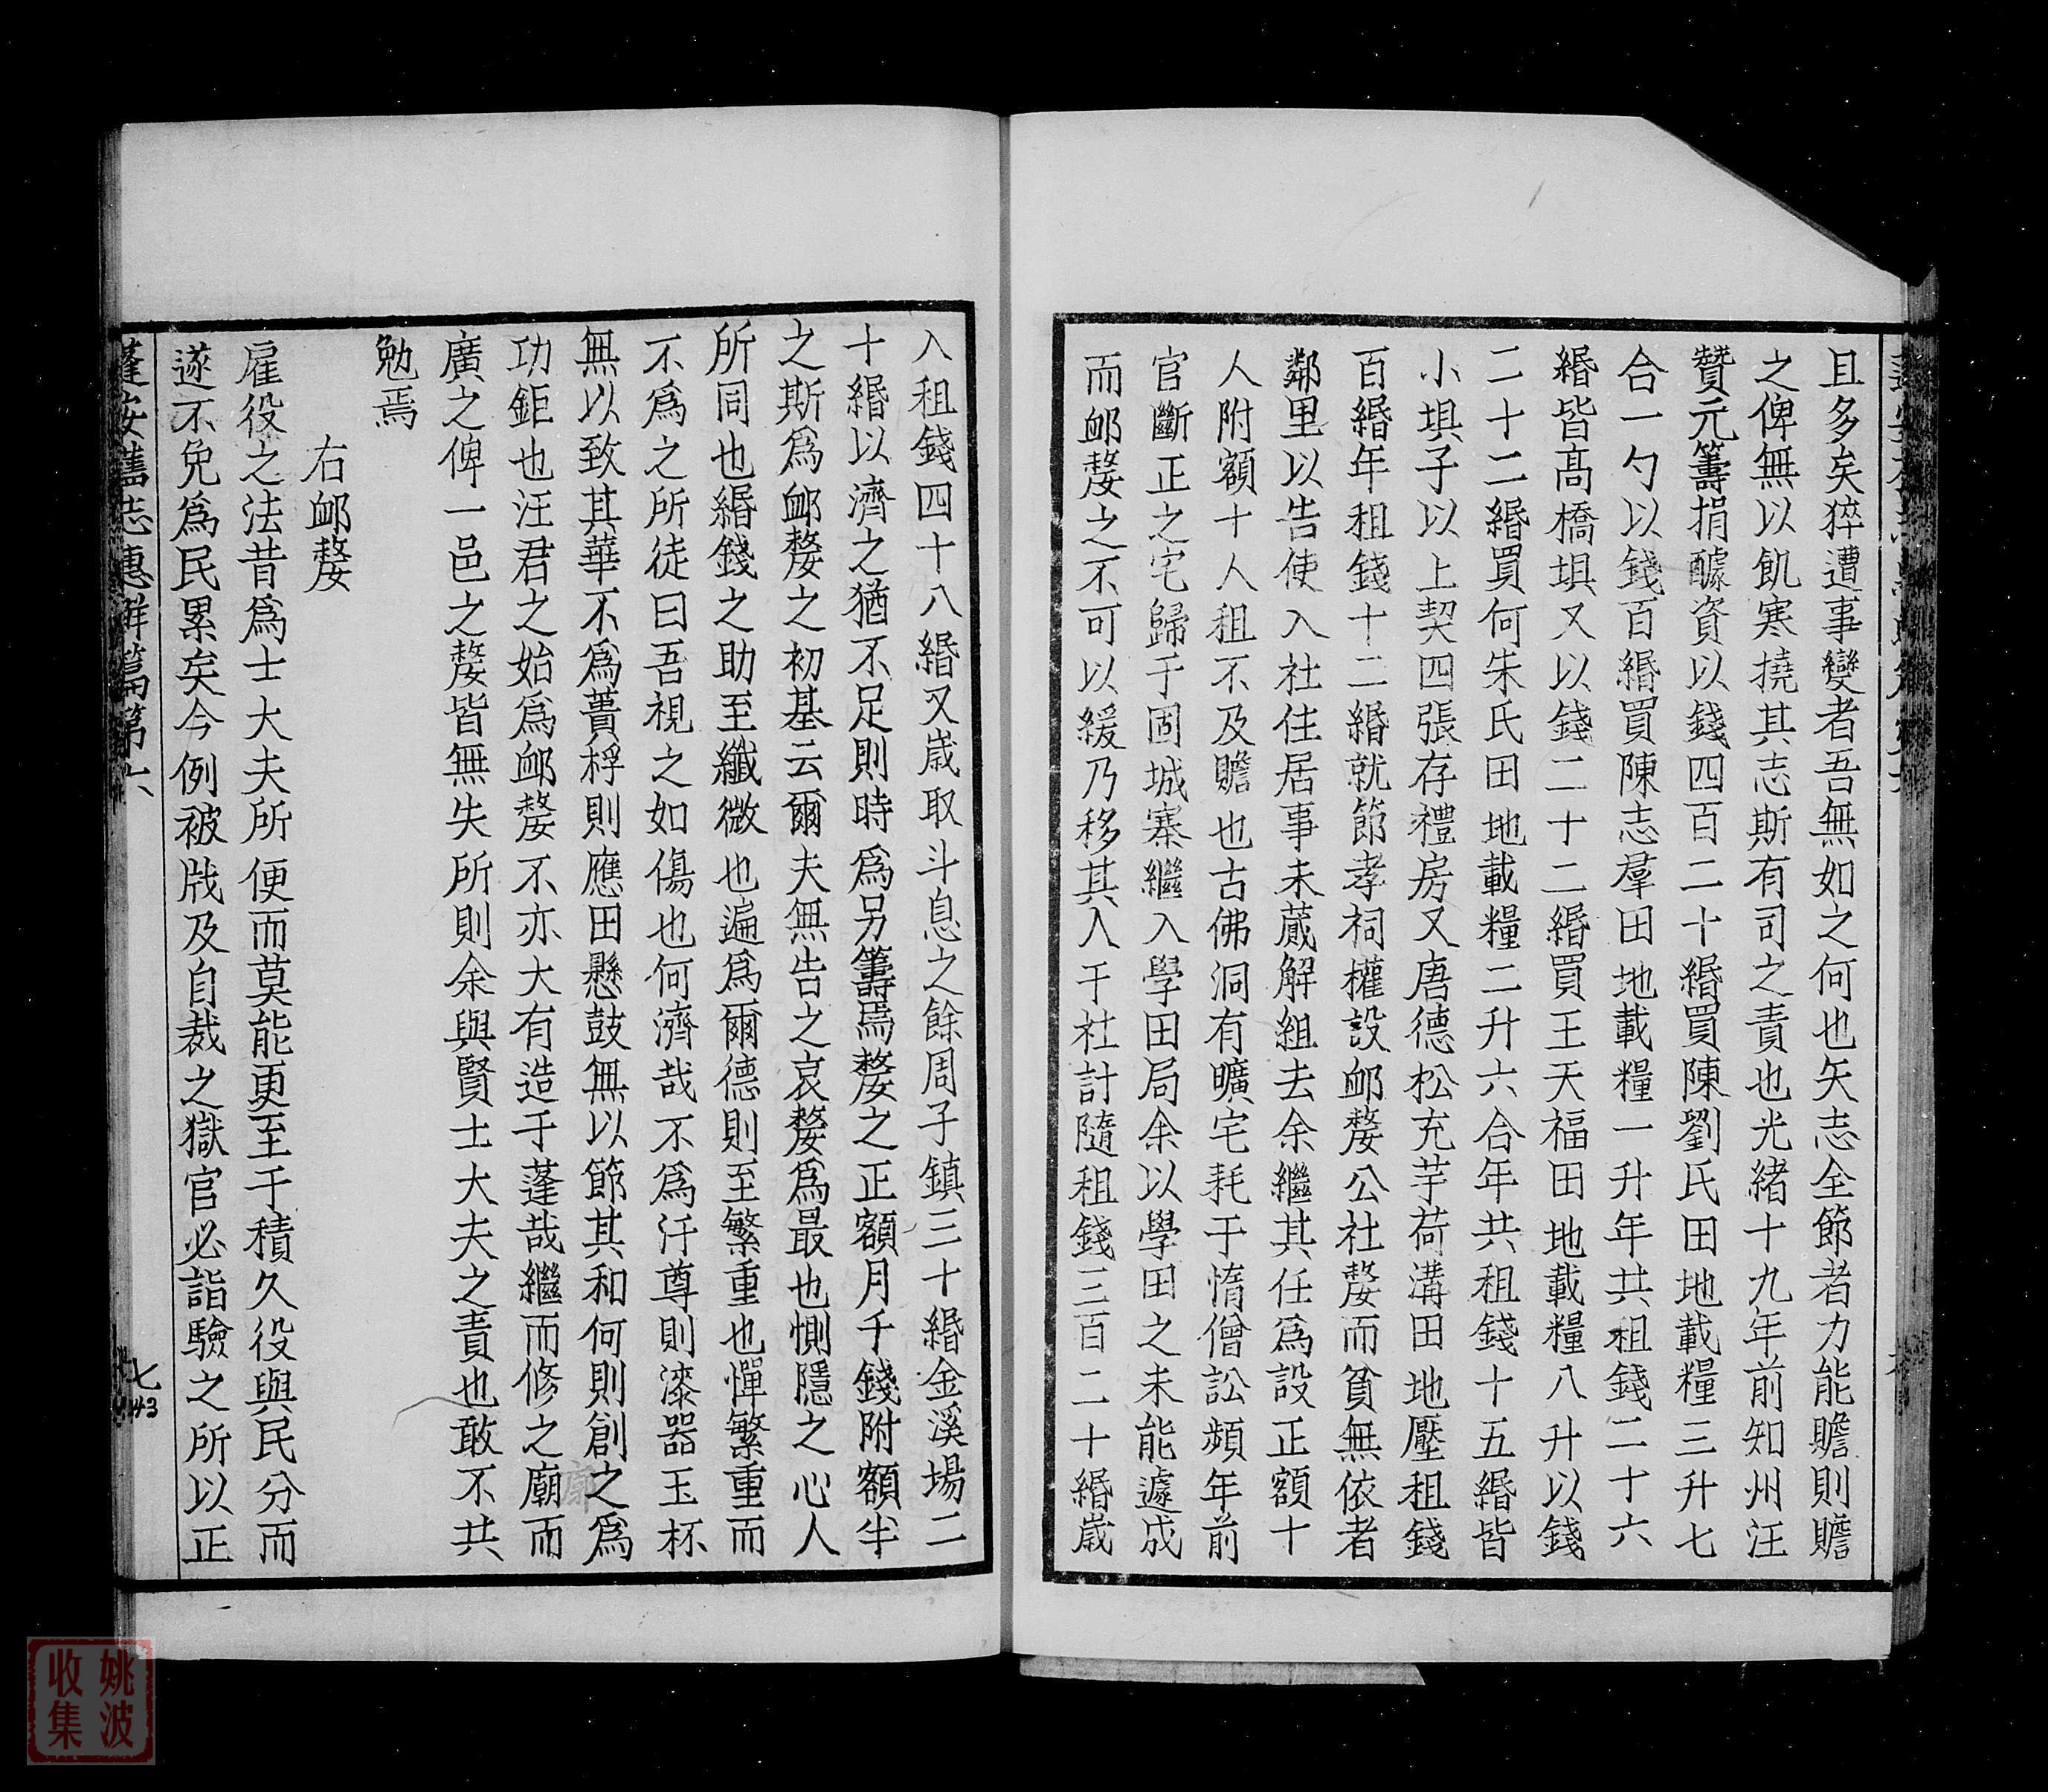 且多矣猝遭事變者吾無如之何也矢志全節者力能贍則贍
之俾無以飢寒撓其志斯有司之責也光緒十九年前知州汪
贊元籌捐醵資以錢四百二十緡買陳劉氏田地載糧三升七
合一勺以錢百緡買陳志羣田地載糧一升年共租錢二十六
緡皆高橋埧又以錢二十二緡買王天福田地載糧八升以錢
二十二緡買何朱氏田地載糧二升六合年共租錢十五緡皆
小埧子以上契四張存禮房又唐德松充芋荷溝田地壓租錢
百緡年租錢十二緡就節孝祠權設卹嫠公社嫠而貧無依者
鄰里以告使入社住居事未蕆解組去余繼其任為設正額十
人附額十人租不及贍也古佛洞有曠宅耗于惰僧訟頻年前
官斷正之宅歸于固城寨繼入學田局余以學田之未能遽成
而卹嫠之不可以緩乃移其入于社計隨租錢三百二十緡歲
入租錢四十八緡又歲取斗息之餘周子鎮三十緡金溪場二
十緡以濟之猶不足則時為另籌焉嫠之正額月千錢附額半
之斯為卹嫠之初基云爾夫無告之哀嫠為最也惻隱之心人
所同也緡錢之助至纖微也遍為爾德則至繁重也憚繁重而
不為之所徒曰吾視之如傷也何濟哉不為汙尊則漆器玉杯
無以致其華不為蕢桴則應田懸鼓無以節其和何則創之為
功鉅也汪君之始為卹嫠不亦大有造于蓬哉繼而修之廟而
廣之俾一邑之嫠皆無失所則余與賢士大夫之責也敢不共
勉焉
右卹嫠
雇役之法昔為士大夫所便而莫能更至于積久役與民分而
遂不免為民累矣今例被戕及自裁之獄官必詣驗之所以正
蓬安舊志惠鮮篇第六
七
廓
姚波
收集